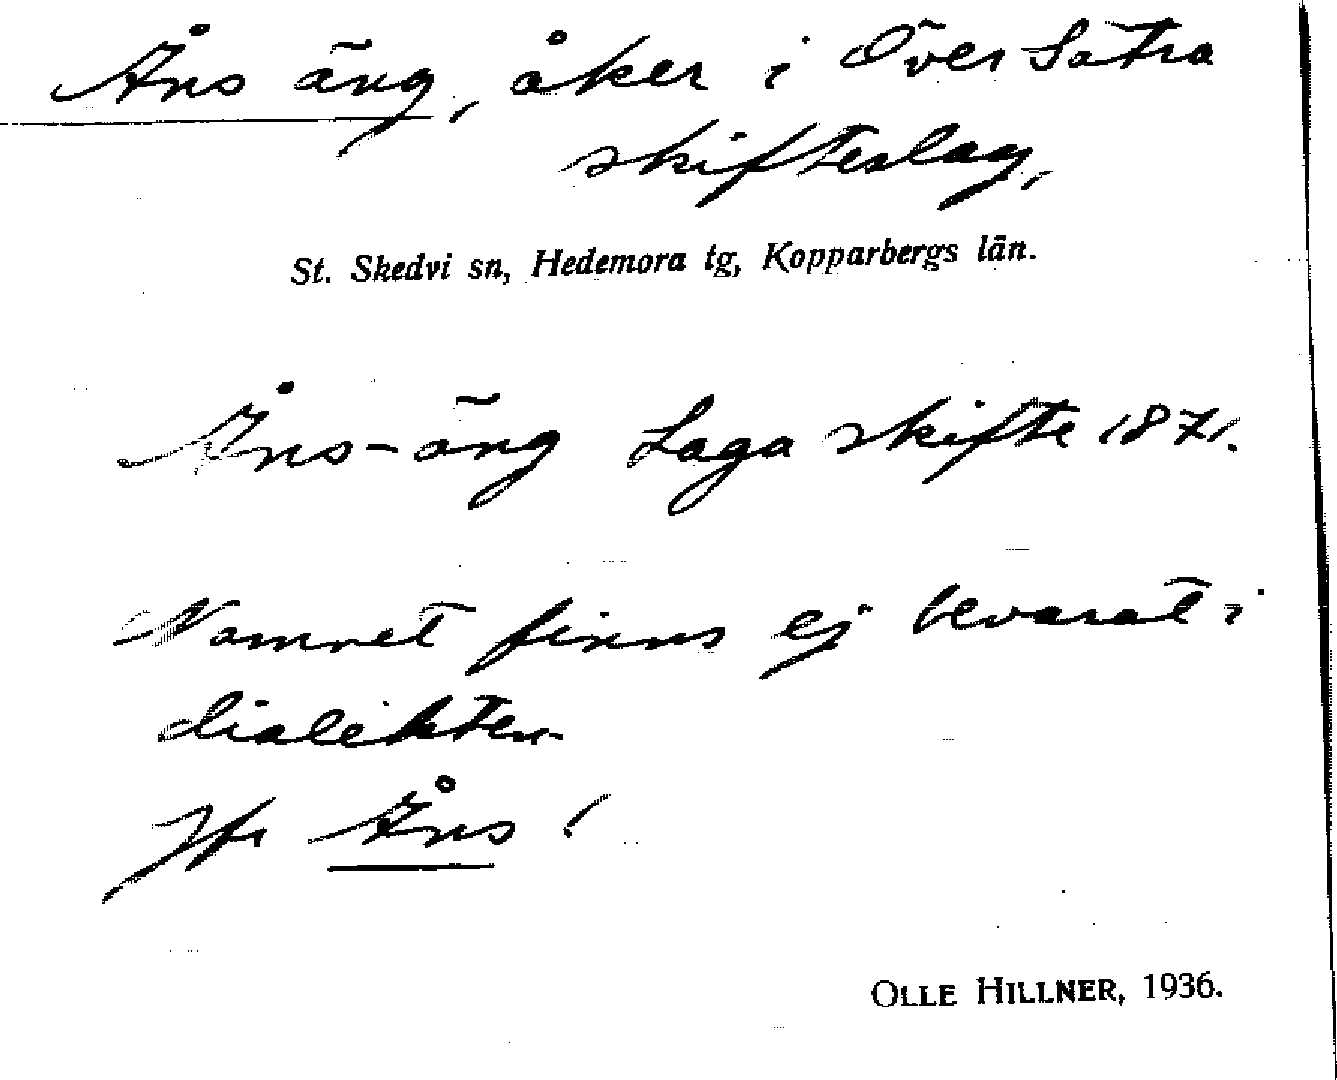 Åns äng, åker i Över Sätra
skifteslag,
St. Skedvi sn, Hedemora tg, Kopparbergs län.
Åns-äng Laga skifte 1871.
Namnet finns ej bevarat i
dialekten
Jfr Åns!
OLLE HILLNER, 1936.